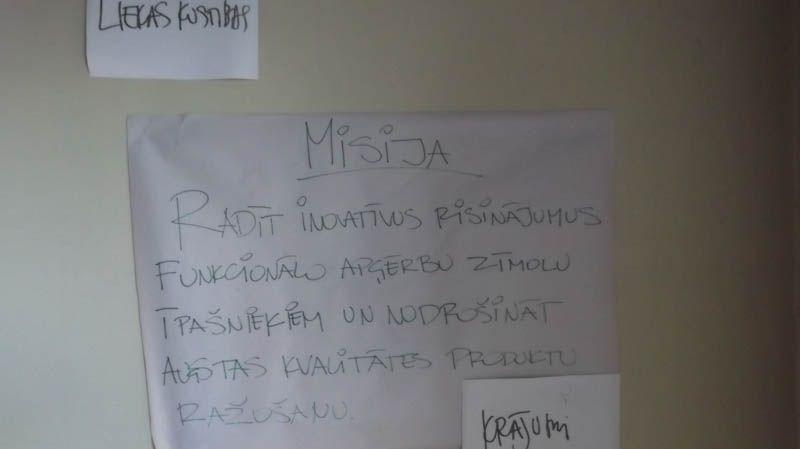 LIEKAS KUSTĪBAS
MISIJA
RADĪT INOVATĪVUS RISINĀJUMUS
FUNKCIONĀLO APĢĒRBU ZĪMOLU
ĪPAŠNIEKIEM UN NODROŠINĀT
AUGSTAS KVALITĀTES PRODUKTU
RAŽOŠANU.
KRĀJUMI